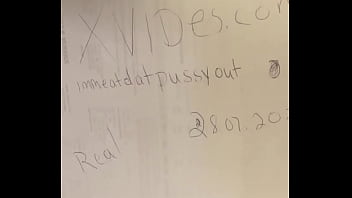 XVIDes.com
immeatdatpussyout
2807.202
Real